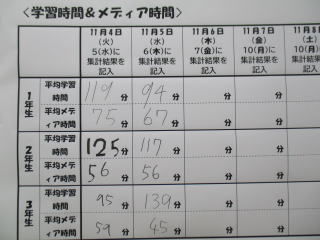 ＜学習時間＆メディア時間＞
11月4日 11月5日 11月6日 11月7日 11月8日
(火) (水) (木) (金)
5(水)に 6(木)に 7(金)に 10(月)に 10(月)
集計結果を 集計結果を 集計結果を 集計結果を 集計結果
記入 記入 記入 記入 記入
1年生 平均学習時間 119分 94分 分 分
平均メディア時間 75分 67分 分 分
2年生 平均学習時間 125分 117分 分 分
平均メディア時間 56分 56分 分 分
3年生 平均学習時間 95分 139分 分 分
平均メディア時間 59分 45分 分 分